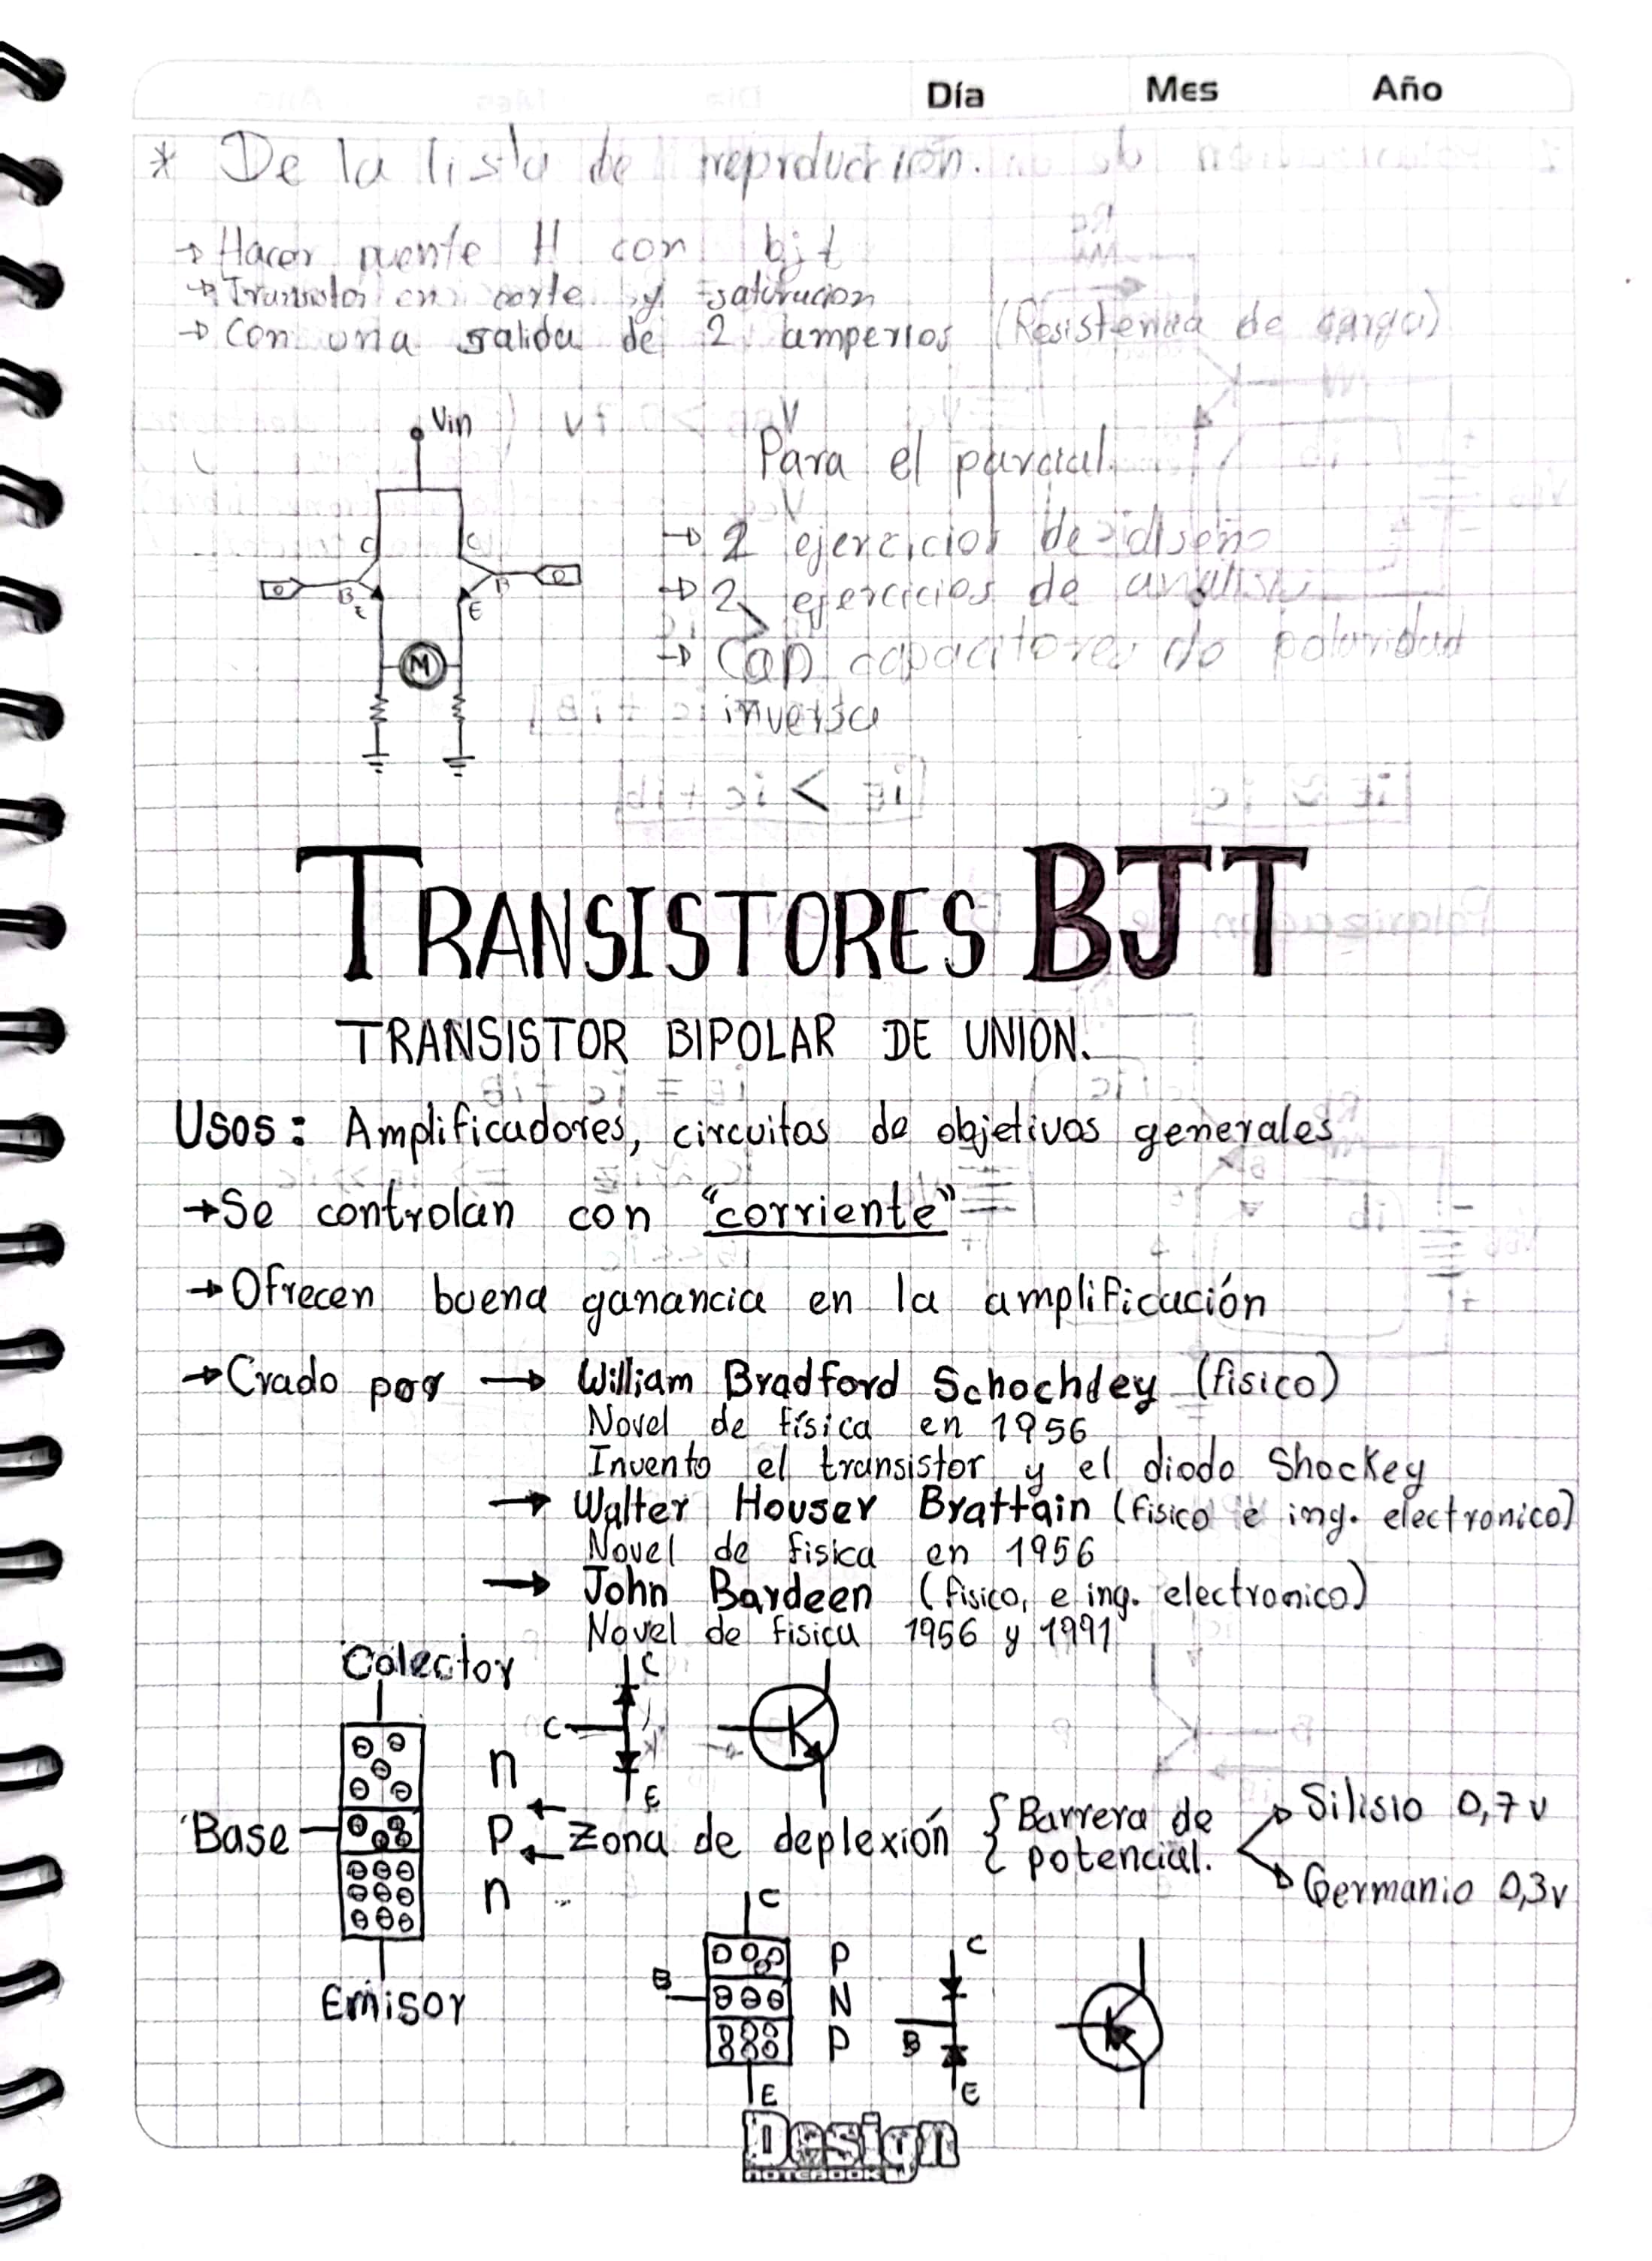 Día Mes Año
* De la lista de reproducción.
→ Hacer puente H con bjt
→ Transistor en corte y saturacion
→ Con una salida de 2 amperios (Resistencia de carga)
Vin
Para el parcial.
C C
→ 2 ejercicios de diseño
B E B E
→ 2 ejercicios de analisis
→ Cap capacitores de polaridad
M
inversa
TRANSISTORES BJT
TRANSISTOR BIPOLAR DE UNION.
Usos: Amplificadores, circuitos de objetivos generales
→ Se controlan con "corriente"
→ Ofrecen buena ganancia en la amplificación
→ Crado por → William Bradford Schochdey (fisico)
Novel de física en 1956
Invento el transistor y el diodo Shockey
→ Walter Houser Brattain (fisico e ing. electronico)
Novel de fisica en 1956
→ John Bardeen (fisico, e ing. electronico)
Novel de fisica 1956 y 1991
Colector C
C
n
E
Base P Zona de deplexión { Barrera de potencial. Silisio 0,7 v
n Germanio 0,3 v
C
P C
Emisor B N
P B
E E
Design
NOTEBOOK